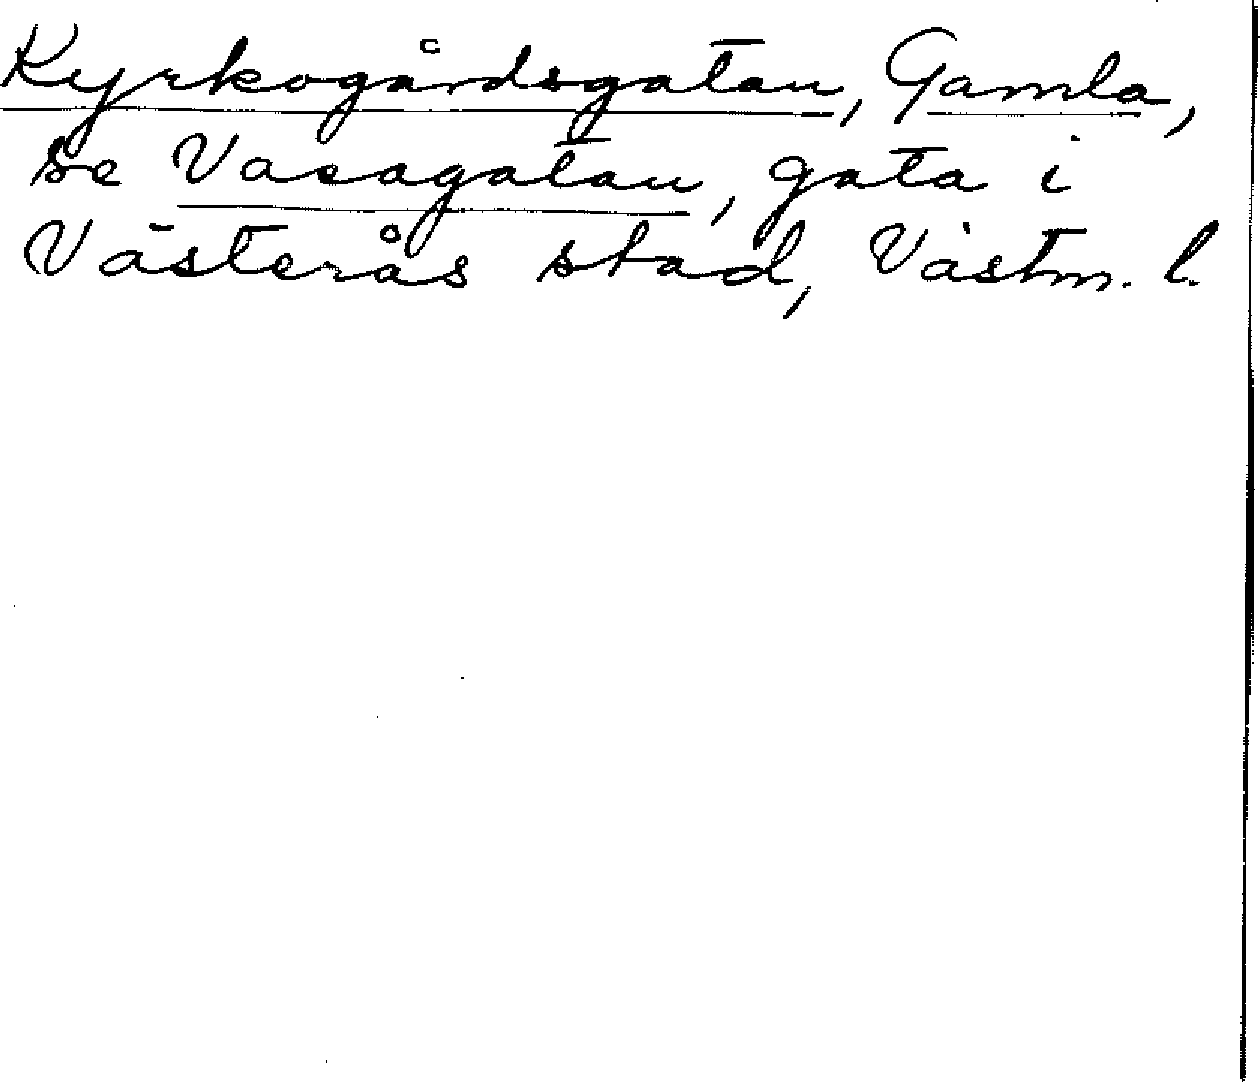 Kyrkogårdsgatan, Gamla,
se Vasagatan, gata i
Västerås stad, Västm. l.